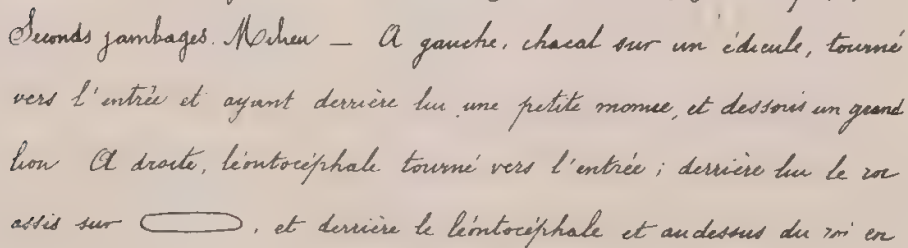 Seconds jambages. Milieu — A gauche, chacal sur un édicule, tourné
vers l'entrée et ayant derrière lui une petite momie, et dessous un grand
lion A droite, léontocéphale tourné vers l'entrée ; derrière lui le roi
assis sur , et derrière le léontocéphale et au dessus du roi en